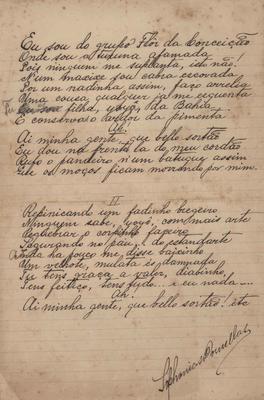 Eu sou do grupo Flôr da Conceição
Onde sou a turuna afamada
Pois ninguem me supplanta, isto não!
N'um maxixe sou cabra escovada
Por um nadinha, assim, faço arrelia
Uma cousa qualquer já me esquenta
filha, yoyô, da Bahia
E conservo o ardor da pimenta
Ai minha gente, que bello sortão
Eu dou na frente lá do meu cordão
Rufo o pandeiro n'um batuque assim
Que os moços ficam morrendo por mim.
II
Repinicando um fadinho bregeiro
Ninguem sabe, yoyô, com mais arte
Requebrar o corpinho faceiro
Segurando no páu do estandarte
Ainda ha pouco me disse baixinho
Um velhote, mulata és damnada
Tu tens graça a valer, diabinho,
Tens feitiço, tens tudo... e eu nada....
Ai minha gente, que bello sortão! etc